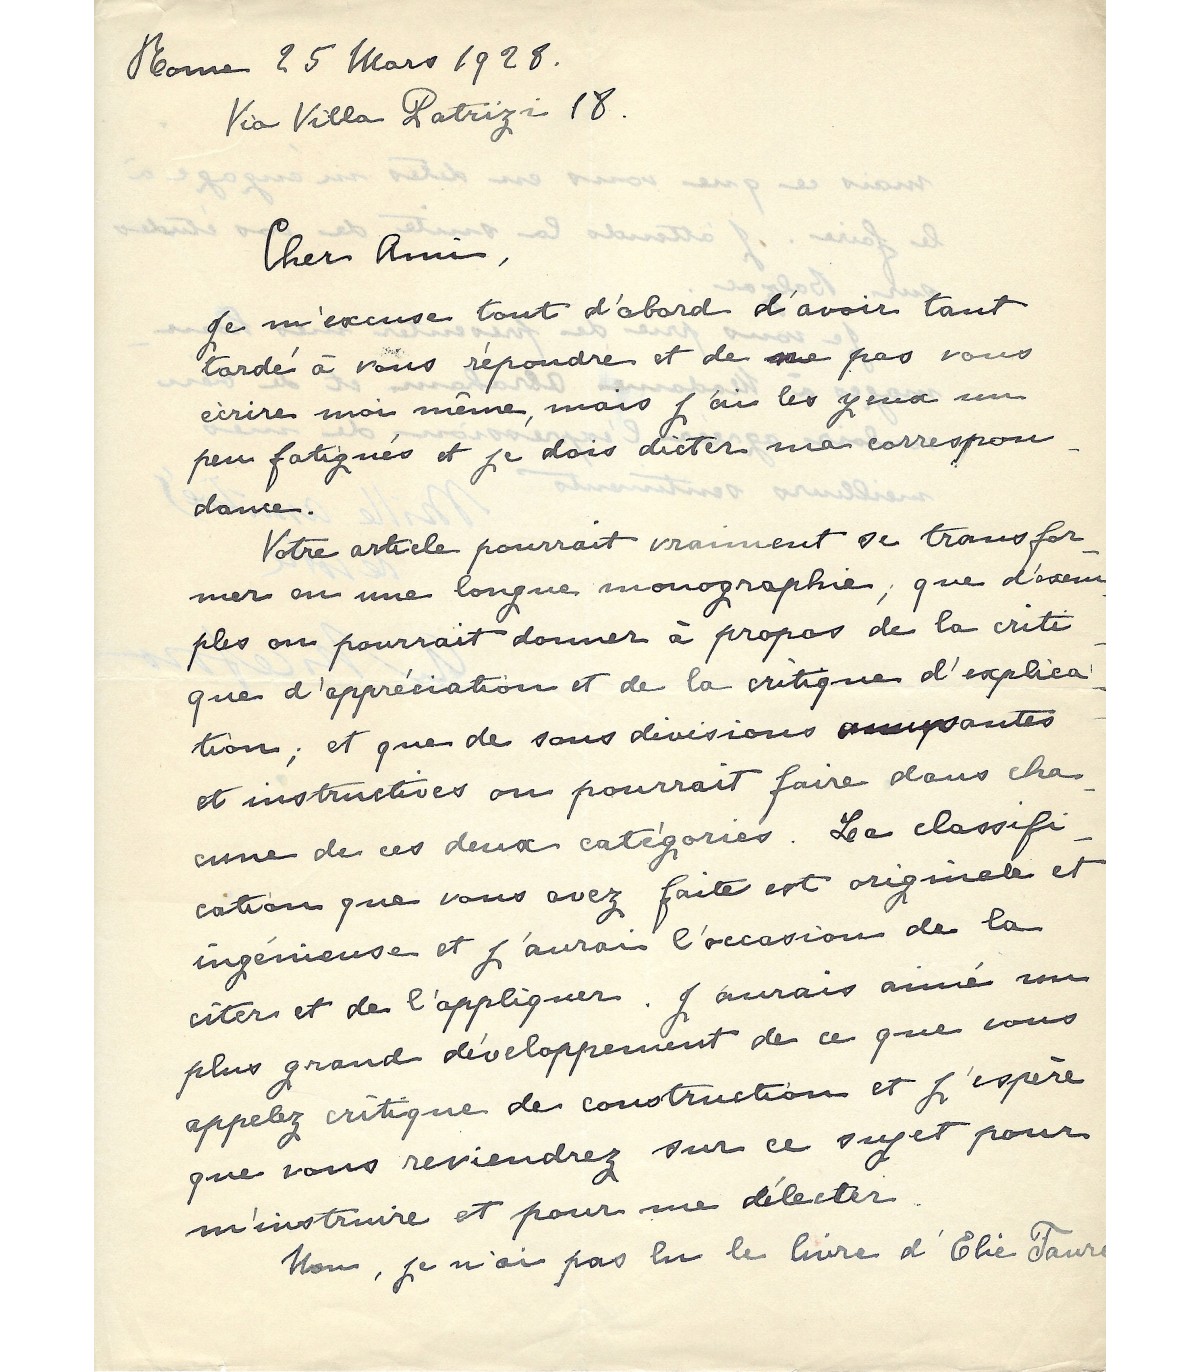 Rome 25 Mars 1928.
Via Villa Patrizi 18.
Cher Ami,
Je m'excuse tout d'abord d'avoir tant
tardé à vous répondre et de ne pas vous
écrire moi même, mais j'ai les yeux un
peu fatigués et je dois dicter ma correspon-
dance.
Votre article pourrait vraiment se transfor-
mer en une longue monographie; que d'exem-
ples on pourrait donner à propos de la criti-
que d'appréciation et de la critique d'explica-
tion; et que de sous divisions amusantes
et instructives on pourrait faire dans cha-
cune de ces deux catégories. La classifi-
cation que vous avez faite est originale et
ingénieuse et j'aurai l'occasion de la
citer et de l'appliquer. J'aurais aimé un
plus grand développement de ce que vous
appelez critique de construction et j'espère
que vous reviendrez sur ce sujet pour
m'instruire et pour me délecter.
Non, je n'ai pas lu le livre d'Elie Faure
mais ce que vous en dites m'engage à
le faire. J'attends la suite de vos études
sur Balzac.
Je vous prie de présenter mes hom-
mages à Madame Abraham et de bien
l'expression de mes
meilleurs sentiments
Mille